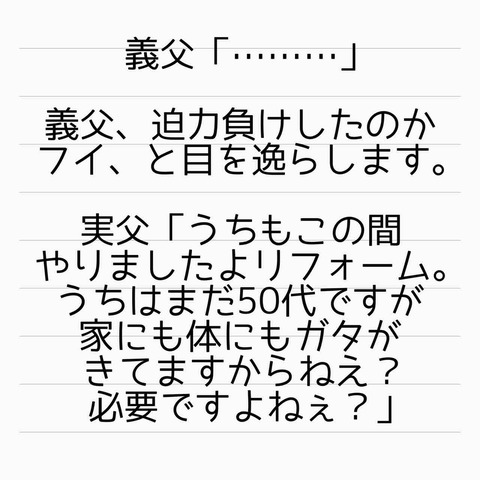 義父「………」
義父、迫力負けしたのか
フイ、と目を逸らします。
実父「うちもこの間
やりましたよリフォーム。
うちはまだ50代ですが
家にも体にもガタが
きてますからねえ？
必要ですよねぇ？」